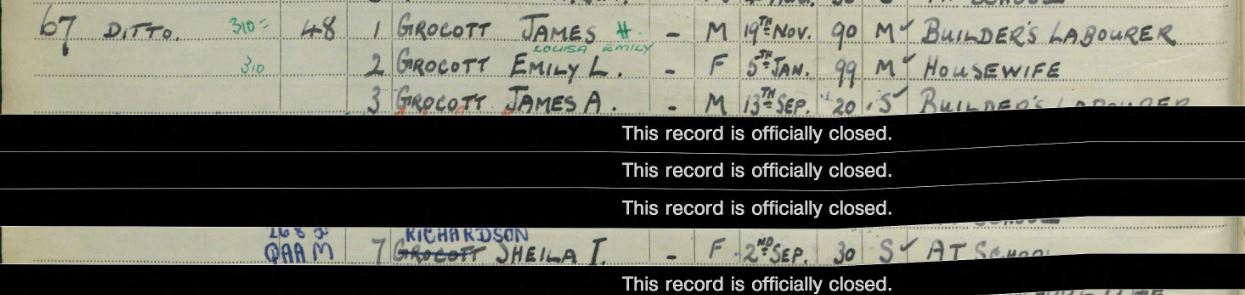 67 DITTO. 310= 48 1 GROCOTT JAMES H. - M 19TH NOV. 90 M✓ BUILDER'S LABOURER
LOUISA EMILY
310 2 GROCOTT EMILY L. - F 5TH JAN. 99 M✓ HOUSEWIFE
3 GROCOTT JAMES A. - M 13TH SEP. 20 S✓ BUILDER'S LABOURER
This record is officially closed.
This record is officially closed.
This record is officially closed.
RICHARDSON
QAA M 7 GROCOTT SHEILA I. - F 2ND SEP. 30 S✓ AT SCHOOL
This record is officially closed.